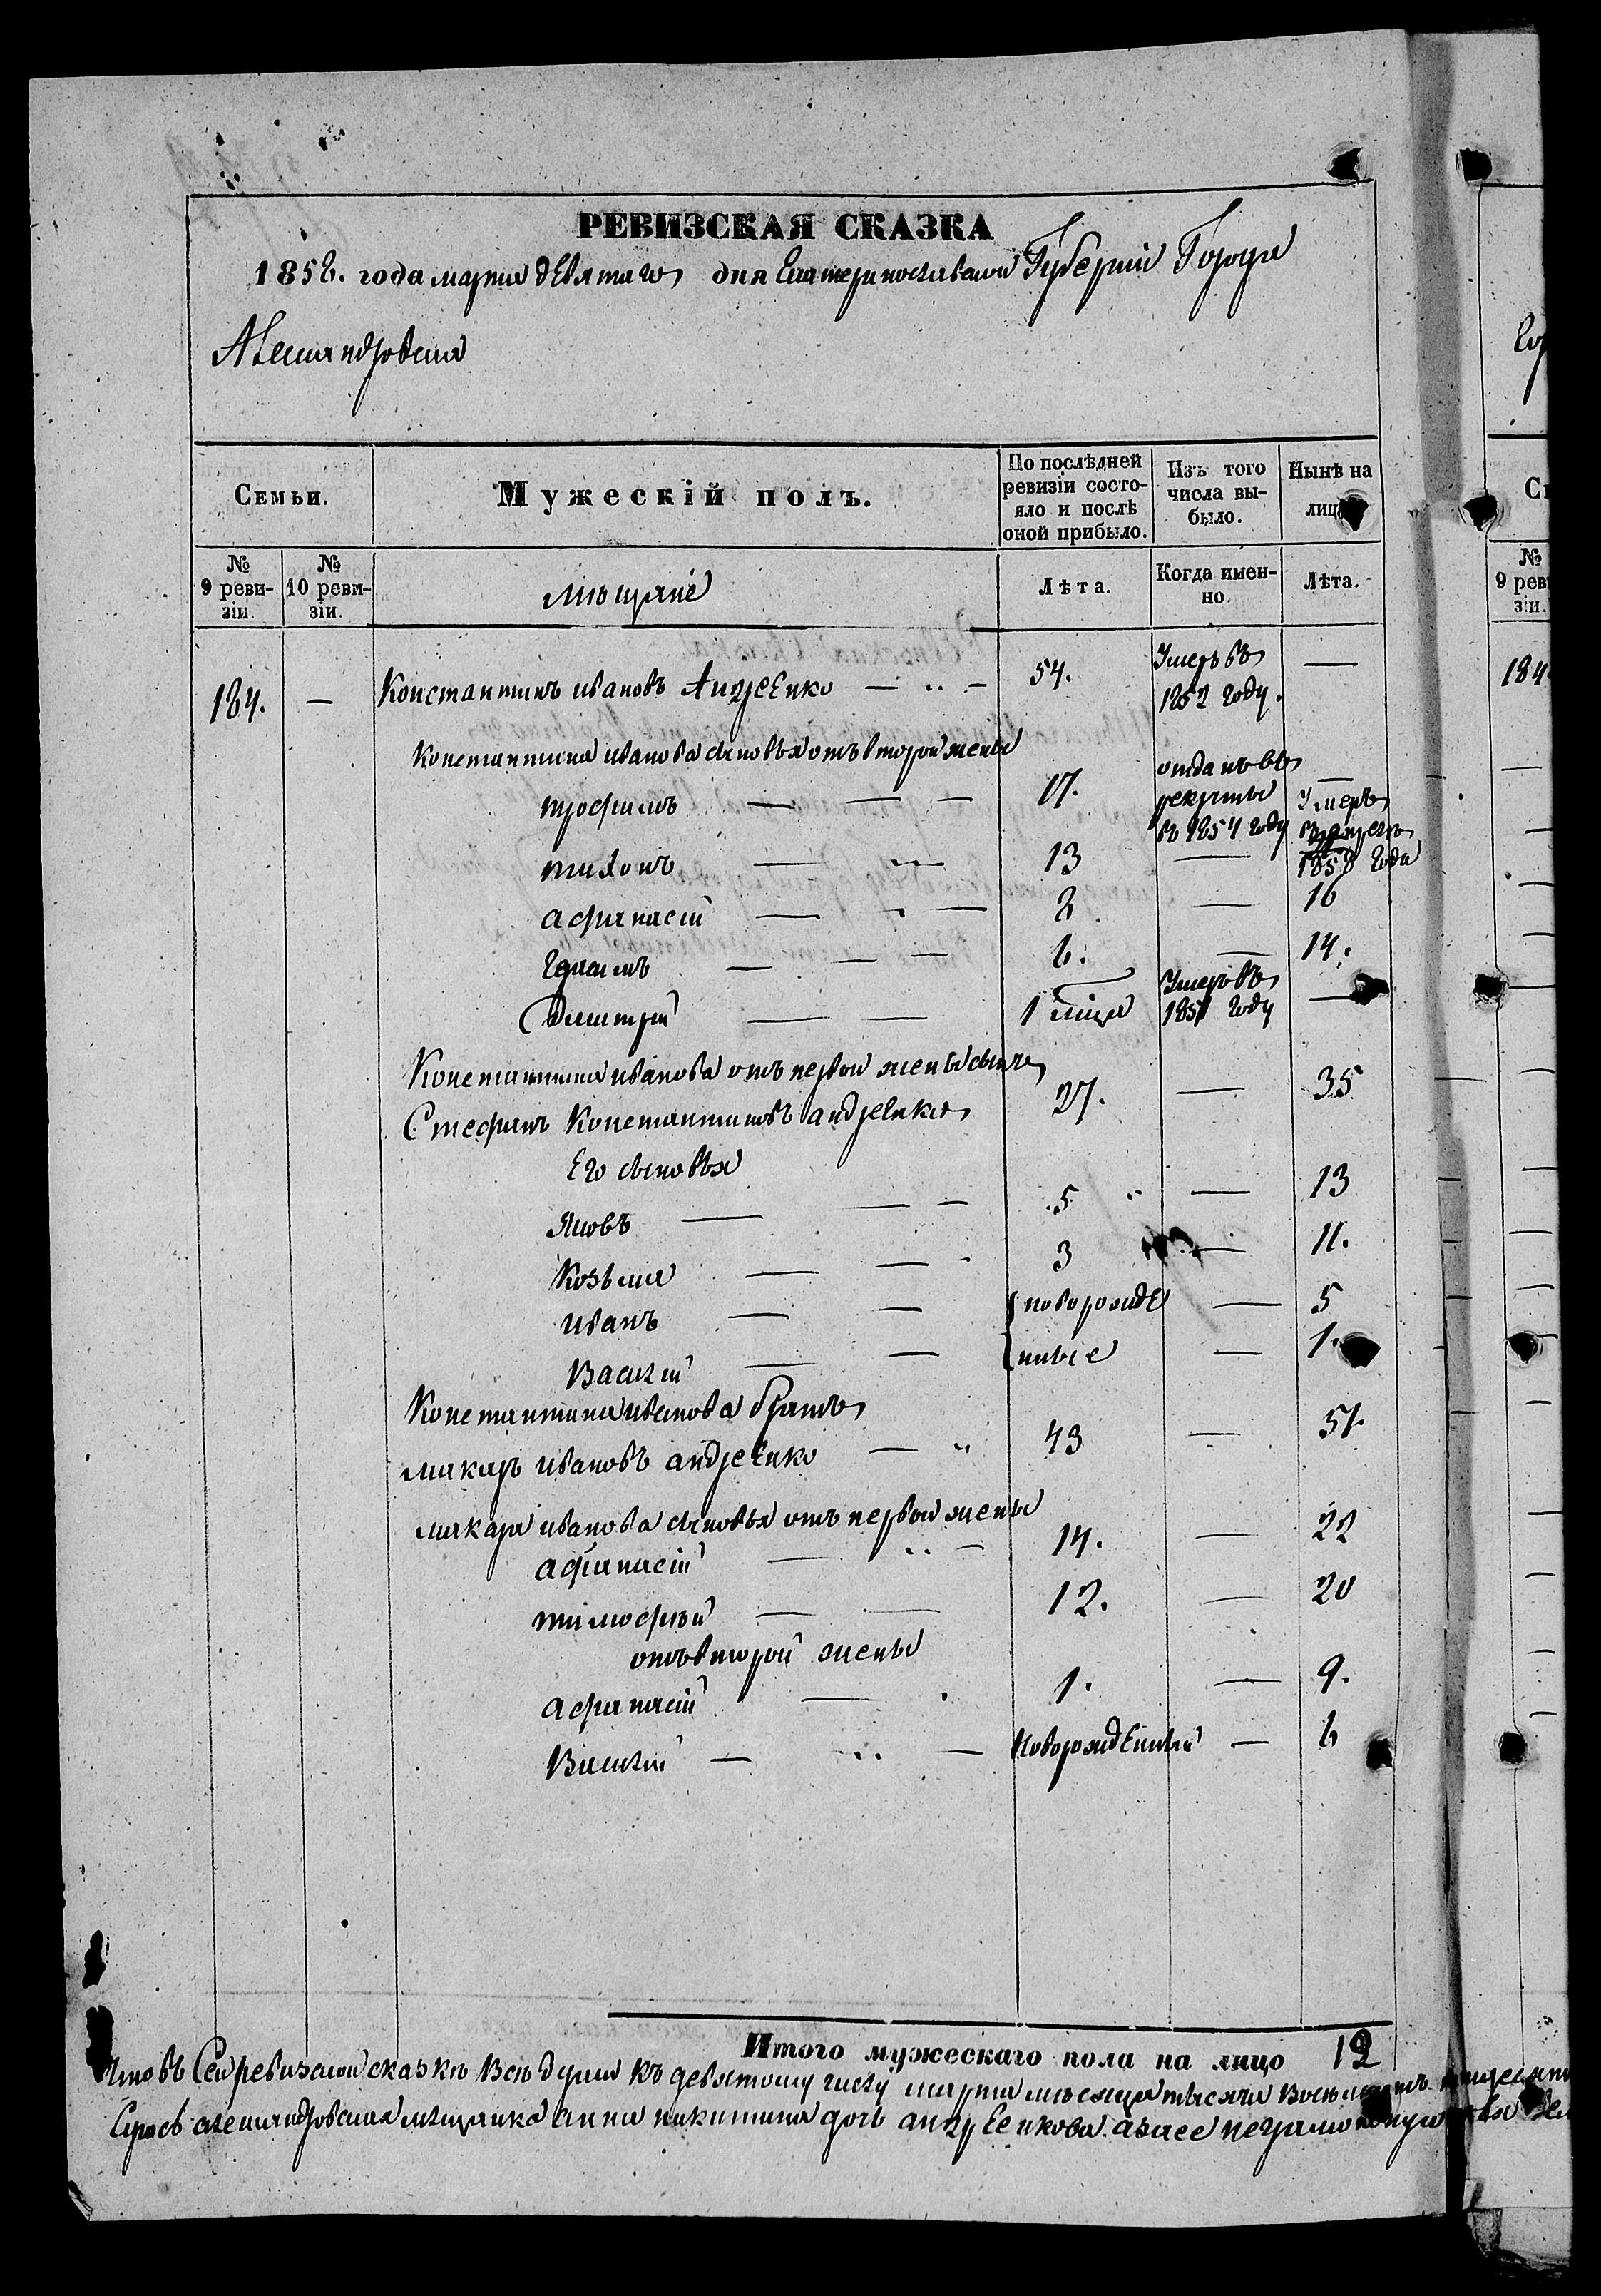 РЕВИЗСКАЯ СКАЗКА
1858. года марта девятаго дня Екатеринославской Губерніи Города
Александровска
Семьи.
Мужескій полъ.
По послѣдней ревизіи состо-
яло и послѣ
оной прибыло.
Изъ того
числа вы-
было.
Нынѣ на
лицо
№
9 реви-
зіи.
№
10 реви-
зіи.
мѣщане
Лѣта.
Когда имен-
но.
Лѣта.
184. — Константинъ ивановъ Андреенко — 54. Умеръ въ
1852 году. —
Константина иванова сыновья отъ второй жены
трофимъ — 17. отданъ въ
рекруты
въ 1854 году —
тихонъ — 13 — Умеръ
1858 года
афанасій — 8 — 16
Ефимъ — 6. — 14.
Димитрій — 1 мѣца Умеръ въ
1851 году —
Константина иванова отъ первой жены сынъ
Стефанъ Константиновъ андреенко 27. — 35
Его сыновья
Яковъ — 5 — 13
Козьма — 3 — 11.
иванъ — новорожде — 5
Василій — нные — 1.
Константина иванова братъ
макаръ ивановъ андреенко — 43 — 51.
макара иванова сыновья отъ первой жены
афанасій — 14. — 22
тимофѣй — 12. — 20
отъ второй жены
афанасій — 1. — 9.
Василій — Новорожденный — 6
Итого мужескаго пола на лицо 12
Что въ Сей ревизской сказкѣ Всѣ души къ девятому числу марта мѣсяца тысяча Восемьсотъ
александровская мѣщанка анна никитина дочь андреенкова
№
9 рев
зіи.
184